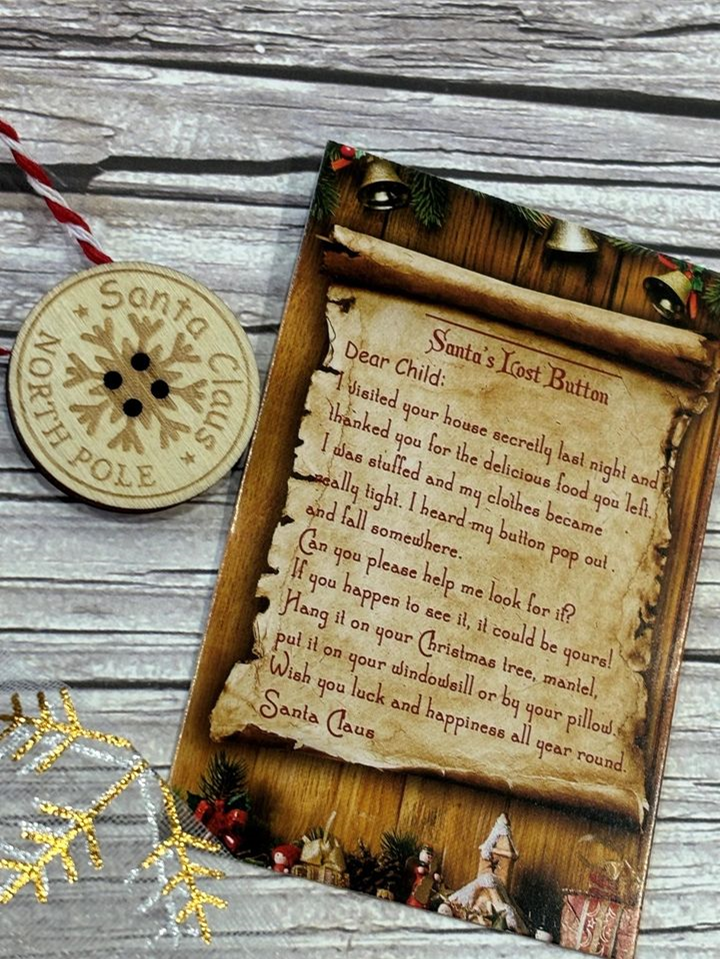 Santa Claus
NORTH POLE
Santa's Lost Button
Dear Child:
I visited your house secretly last night and
thanked you for the delicious food you left.
I was stuffed and my clothes became
really tight. I heard my button pop out.
and fall somewhere.
Can you please help me look for it?
If you happen to see it, it could be yours!
Hang it on your Christmas tree, mantel,
put it on your windowsill or by your pillow.
Wish you luck and happiness all year round.
Santa Claus